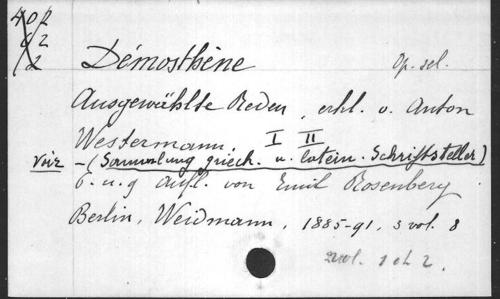 402
62
2
Démosthène Op. sel.
Ausgewählte Reden, erkl. v. Anton
Westermann. I II
voir - (Sammlung griech. u. latein. Schriftsteller)
6. u. 9 Aufl. von Emil Rosenberg
Berlin, Weidmann, 1885-91, 3 vol. 8
2 vol. 1 et 2.